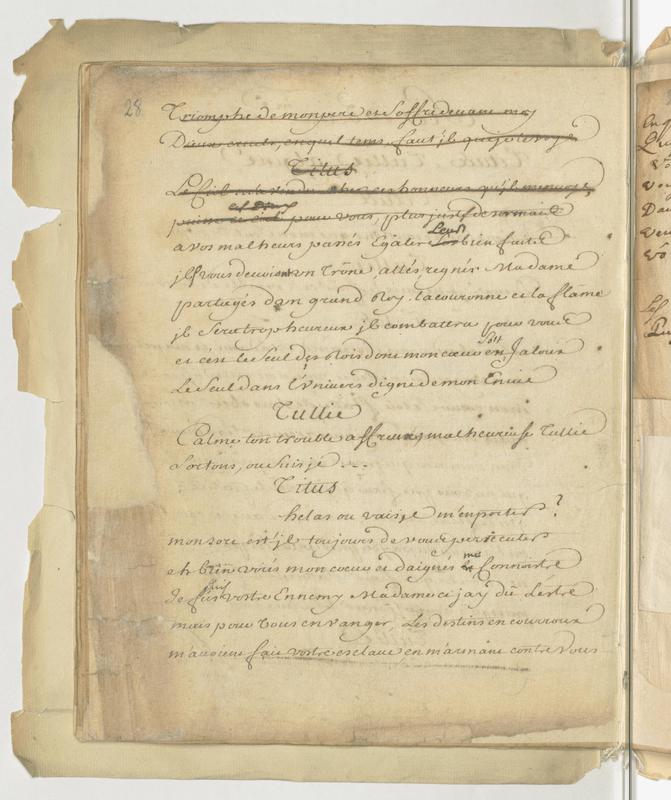 28
Triomphe de mon pere et soffre devant moy
Dieux cruels, en quel tems faut jl que je le voye
Titus
Le Ciel
et Dieux
pour vous, plus juste desormais
Leurs
a vos malheurs passés Egaler bienfaits
jls vous devoient un Trône, allés regnér Madame
partagés d'un grand Roy, la couronne et la flâme
jl Sera trop heureux jl combattra pour vous
Soit
et c'est le Seul des Rois dont mon coeur Jaloux
Le Seul dans l'Univers digne de mon Envie
Tullie
Calme ton trouble affreux, malheureuse Tullie
Sortons, ou suis je ...
Titus
helas ou vaisje m'emporter?
mon sort est-jl toujours de vous persecuter
me
eh bien voiés mon coeur et daignés Connoistre
suis
Je vostre Ennemy Madame et j'ay dû l'éstre
mais pour vous en vanger, les destins en courroux
m'avoient fait vostre esclave en m'armant contre Vous